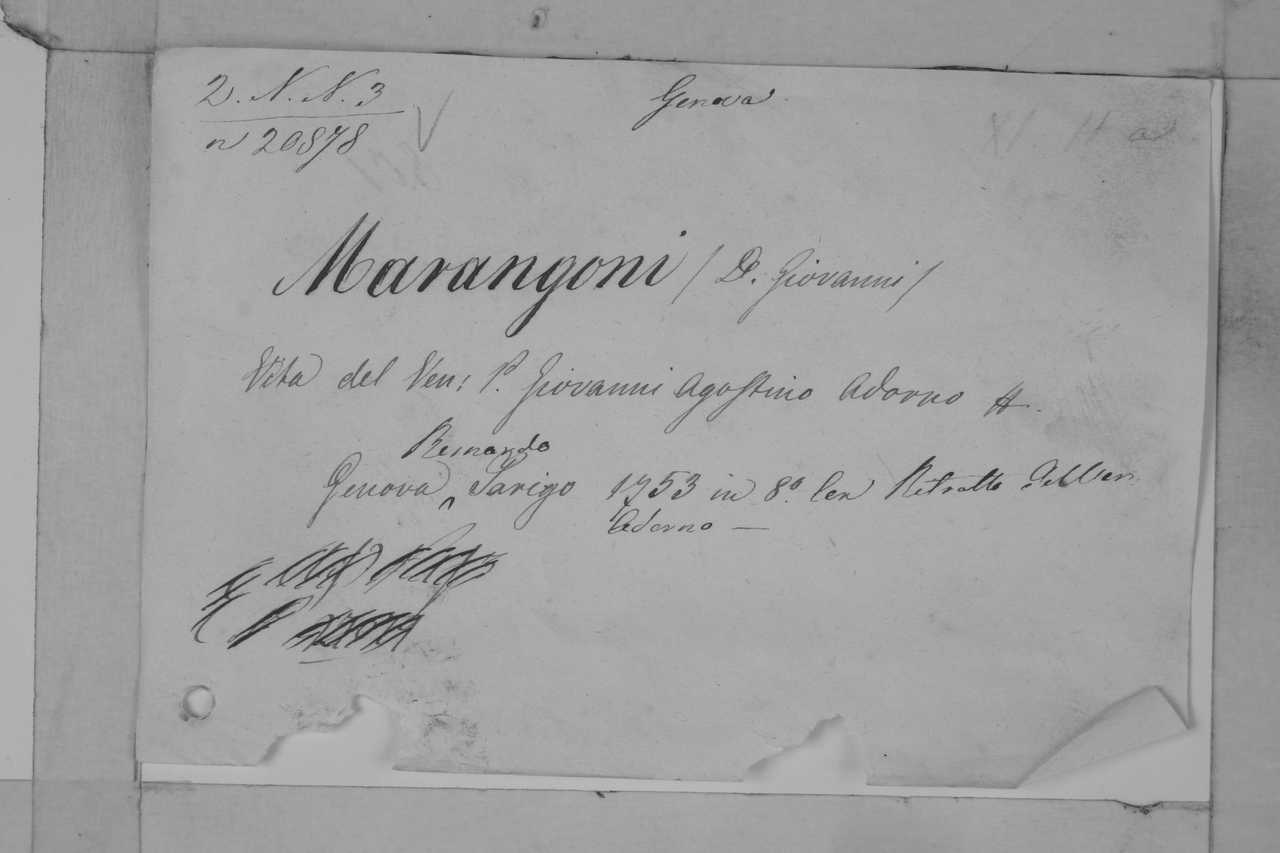 2. N. N. 3
Genova
n 20878
Marangoni / D. Giovanni /
Vita del Ven: P. Giovanni Agostino Adorno
Bernardo
Genova Tarigo 1753 in 8º. Con Ritratto del Ven
Adorno —